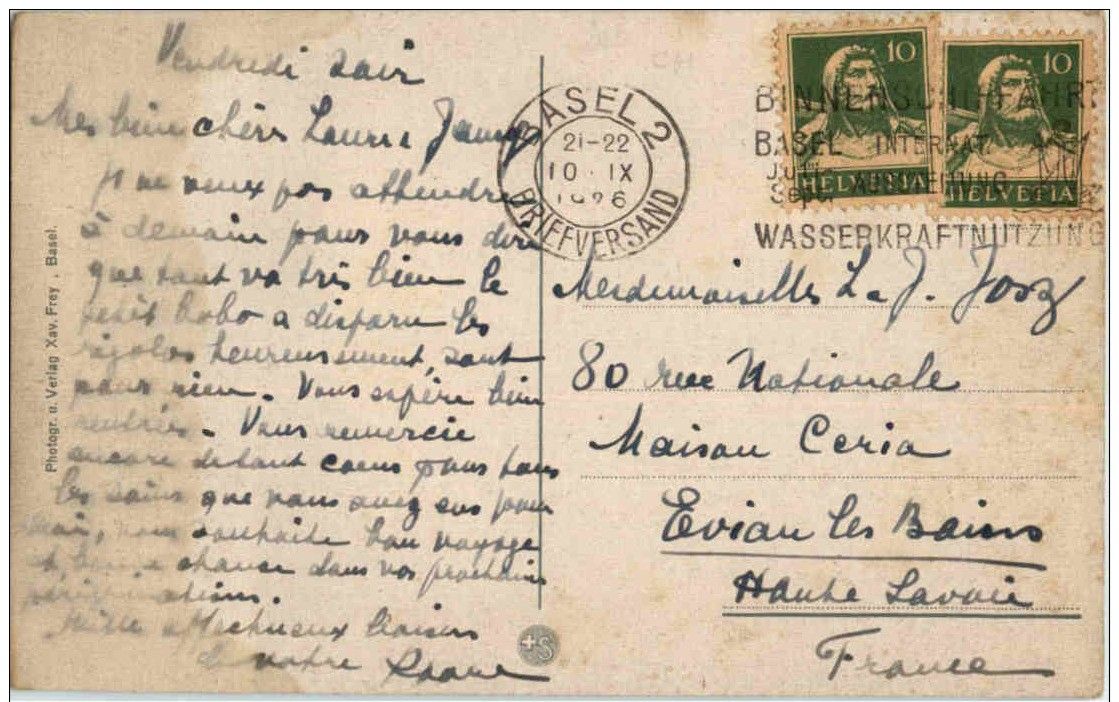 Vendredi soir
Mes bien chères Laure & Jenny
je ne veux pas attendre
à demain pour vous dire
que tout va très bien le
petit bobo a disparu les
rigolos heureusement, sont
pour rien. Vous espère bien
rentrées. Vous remercie
encore de tout coeur pour tous
les soins que vous avez eus pour
moi, vous souhaite bon voyage
et bonne chance dans vos prochaines
pérégrinations.
Mille affectueux baisers
de votre
Photogr. u. Verlag Xav. Frey, Basel.
BASEL 2
21-22
10. IX
1926
BRIEFVERSAND
10
10
HELVETIA
HELVETIA
BINNENSCHIFFAHRT
BASEL INTERNAT.
Juli
Sept. AUSSTELLUNG
WASSERKRAFTNUTZUNG
Mesdemoiselles L & J.
80 rue Nationale
Maison Ceria
Evian les Bains
Haute Savoie
France
+S